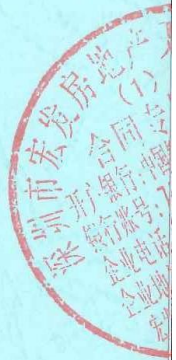 深圳市宏发房地产
(1)
合同专
开户银行:中国
银行账号:7
企业电话
企业地
宏